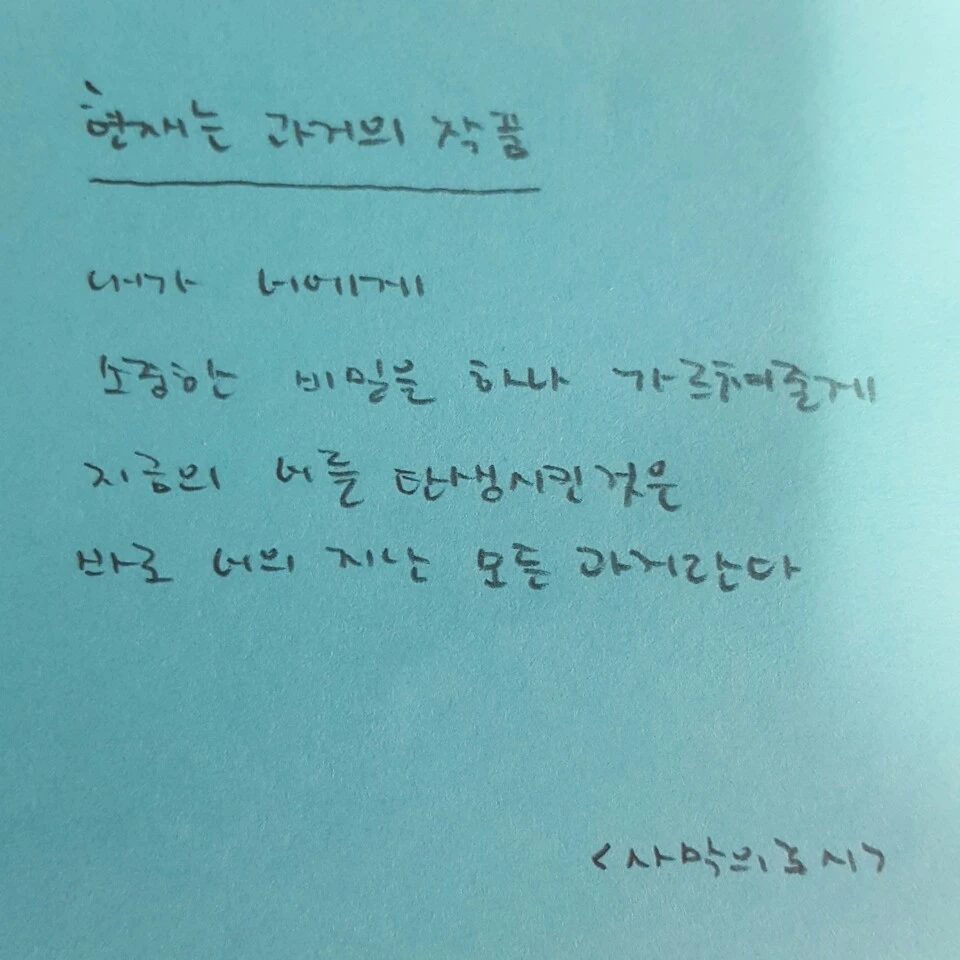 현재는 과거의 작품
내가 너에게
소중한 비밀을 하나 가르쳐줄게
지금의 너를 탄생시킨것은
바로 너의 지난 모든 과거란다
<사막의 시>